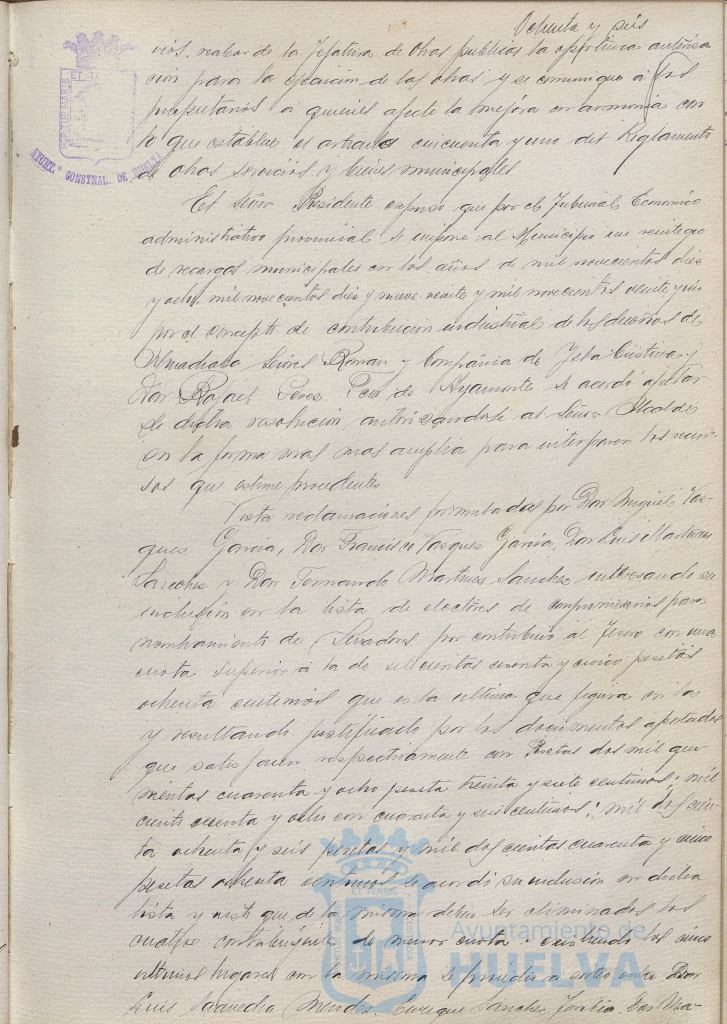 Ochenta y seis
rios, recabar de la Jefatura de Obras publicas la oportuna autorisa
cion para la ejecución de las obras y se comunique a los
propietarios a quienes afecte la mejora en armonia con
lo que establece el articulo cincuenta y uno del Reglamento
de obras servicios y bienes municipales
El Señor Presidente expuso que por el Tribunal Económico
administrativo provincial se impone al Municipio un reintegro
de recargos municipales en los años de mil novecientos diez
y ocho, mil novecientos diez y nueve veinte y mil novecientos veinte y uno
por el concepto de contribucion industrial de los dueños de
Almadraba Señores Roman y Compañia de Isla Cristina y
Don Rafael Peres Feu de Ayamonte se acordó apelar
de dicha resolucion autorizandose al Señor Alcalde
en la forma mas mas amplia para interponer los recur
sos que estime procedentes
Vista reclamaciones formuladas por Don Miguel Vas
ques Garcia, Don Francisco Vasques Garcia, Don Luis Martines
Sanches y Don Fernando Martines Sanches interesando su
inclusión en la lista de electores de compromisarios para
nombramiento de Senadores por contribuir al Tesoro con una
cuota superior a la de seiscientas y cinco pesetas
ochenta centimos que es la ultima que figura en la
y resultando justificado por los documentos aportados
que satisfacen respectivamente con Pesetas dos mil qui
nientas cuarenta y ocho peseta treinta y siete centimos; mil
ciento y ocho con cuarenta y seis centimos; mil dos cien
ta ochenta y seis pesetas y mil dos cientas cuarenta y cinco
pesetas ochenta centimos se acordó su inclusion en dicha
lista y visto que de la misma deben ser eliminados los
cuatro contribuyentes de menor cuota y los cinco
ultimos lugares con la misma se procedio a sorteo entre Don
Luis Saavedra Mendez, Enrique Sanches Don Ma-
AYUNT.º CONSTNAL. DE HUELVA
Ayuntamiento de
HUELVA